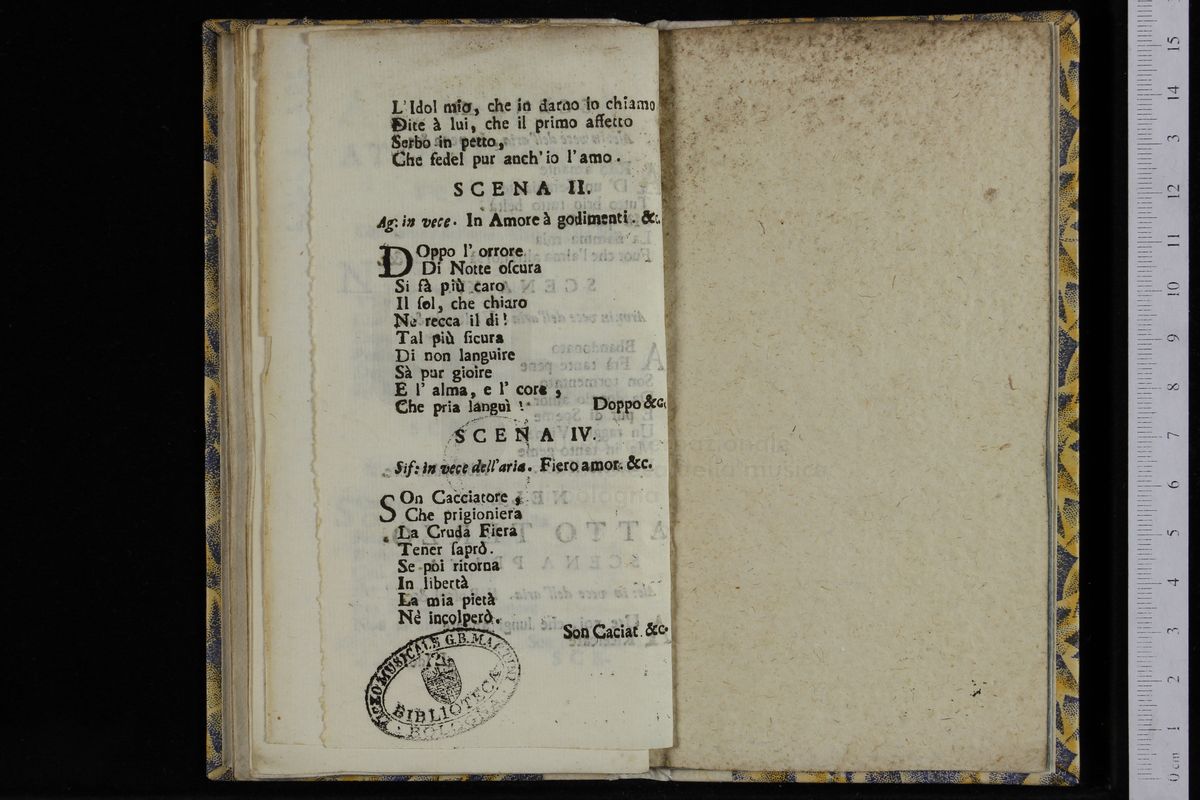 L'Idol mio, che in darno io chiamo
Dite à lui, che il primo affetto
Serbo in petto,
Che fedel pur anch'io l'amo.
SCENA II.
Ag: in vece. In Amore à godimenti. &c.
DOppo l' orrore
Di Notte oſcura
Si fà più caro
Il ſol, che chiaro
Ne recca il di!
Tal più ſicura
Di non languire
Sà pur gioire
E l' alma, e l' core,
Che pria languì! Doppo &c.
SCENA IV.
Sif: in vece dell'aria. Fiero amor. &c.
SOn Cacciatore,
Che prigioniera
La Cruda Fiera
Tener ſaprò.
Se poi ritorna
In libertà
La mia pietà
Nè incolperò.
Son Caciat. &c.
LICEO MUSICALE G.B. MARTINI
BIBLIOTECA
BOLOGNA
della musica
bologna
0 cm 1 2 3 4 5 6 7 8 9 10 11 12 3 14 15